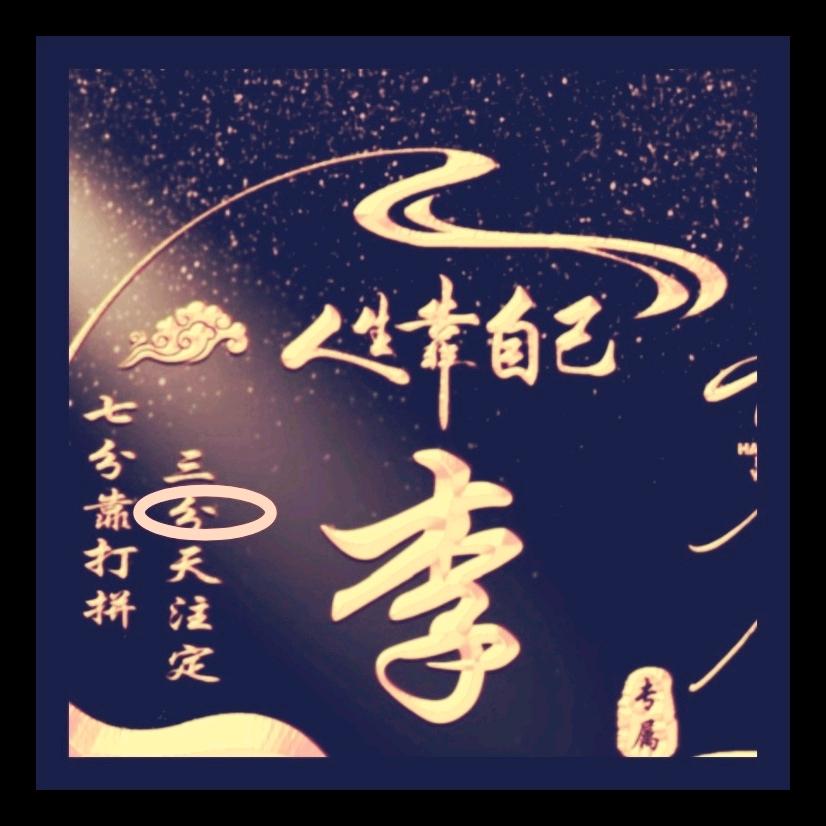 人生靠自己
三分天注定
七分靠打拼
李
专属
HA